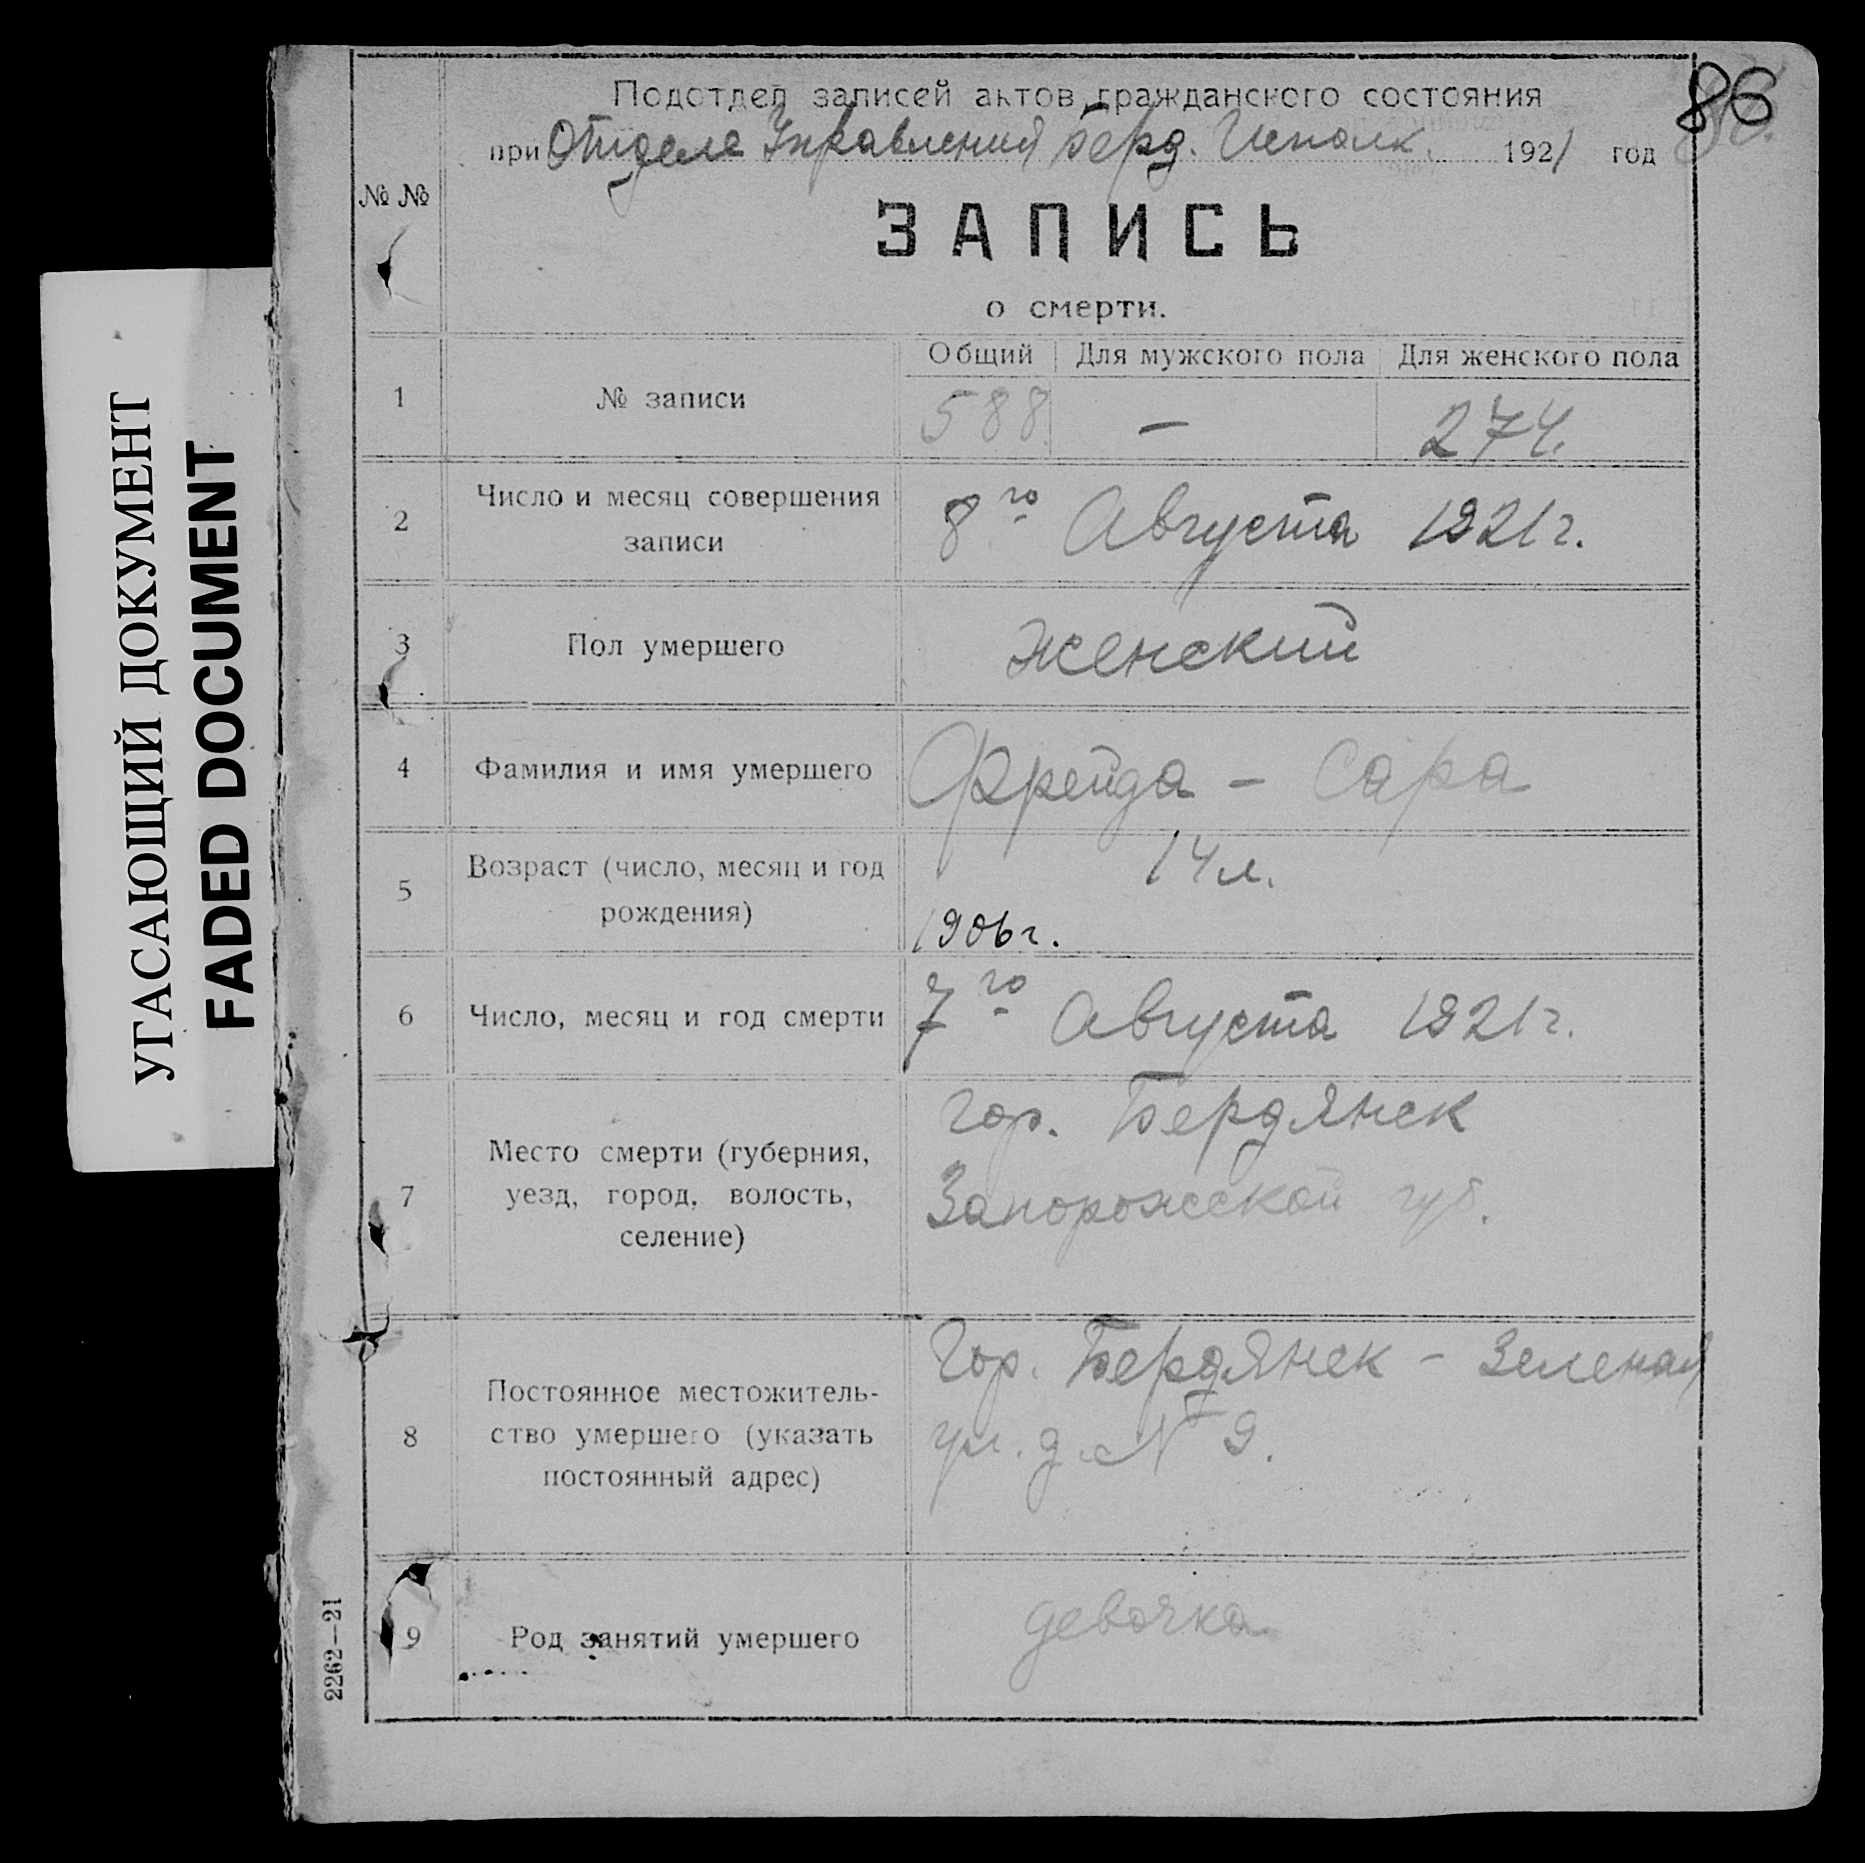 УГАСАЮЩИЙ ДОКУМЕНТ
FADED DOCUMENT
86
Подотдел записей актов гражданского состояния
при Отделе Управления Берд. Исполк. 1921 год
№ №
ЗАПИСЬ
о смерти.
Общий Для мужского пола Для женского пола
1 № записи 588. — 274.
2 Число и месяц совершения
записи
8го Августа 1921 г.
3 Пол умершего Женский
4 Фамилия и имя умершего Фрейда - Сара
5 Возраст (число, месяц и год
рождения)
14 л.
1906 г.
6 Число, месяц и год смерти 7го Августа 1921 г.
7 Место смерти (губерния,
уезд, город, волость,
селение)
гор. Бердянск
Запорожской губ.
8 Постоянное местожитель-
ство умершего (указать
постоянный адрес)
Гор. Бердянск - Зеленая
ул. д. № 9.
9 Род занятий умершего девочка
2262—21